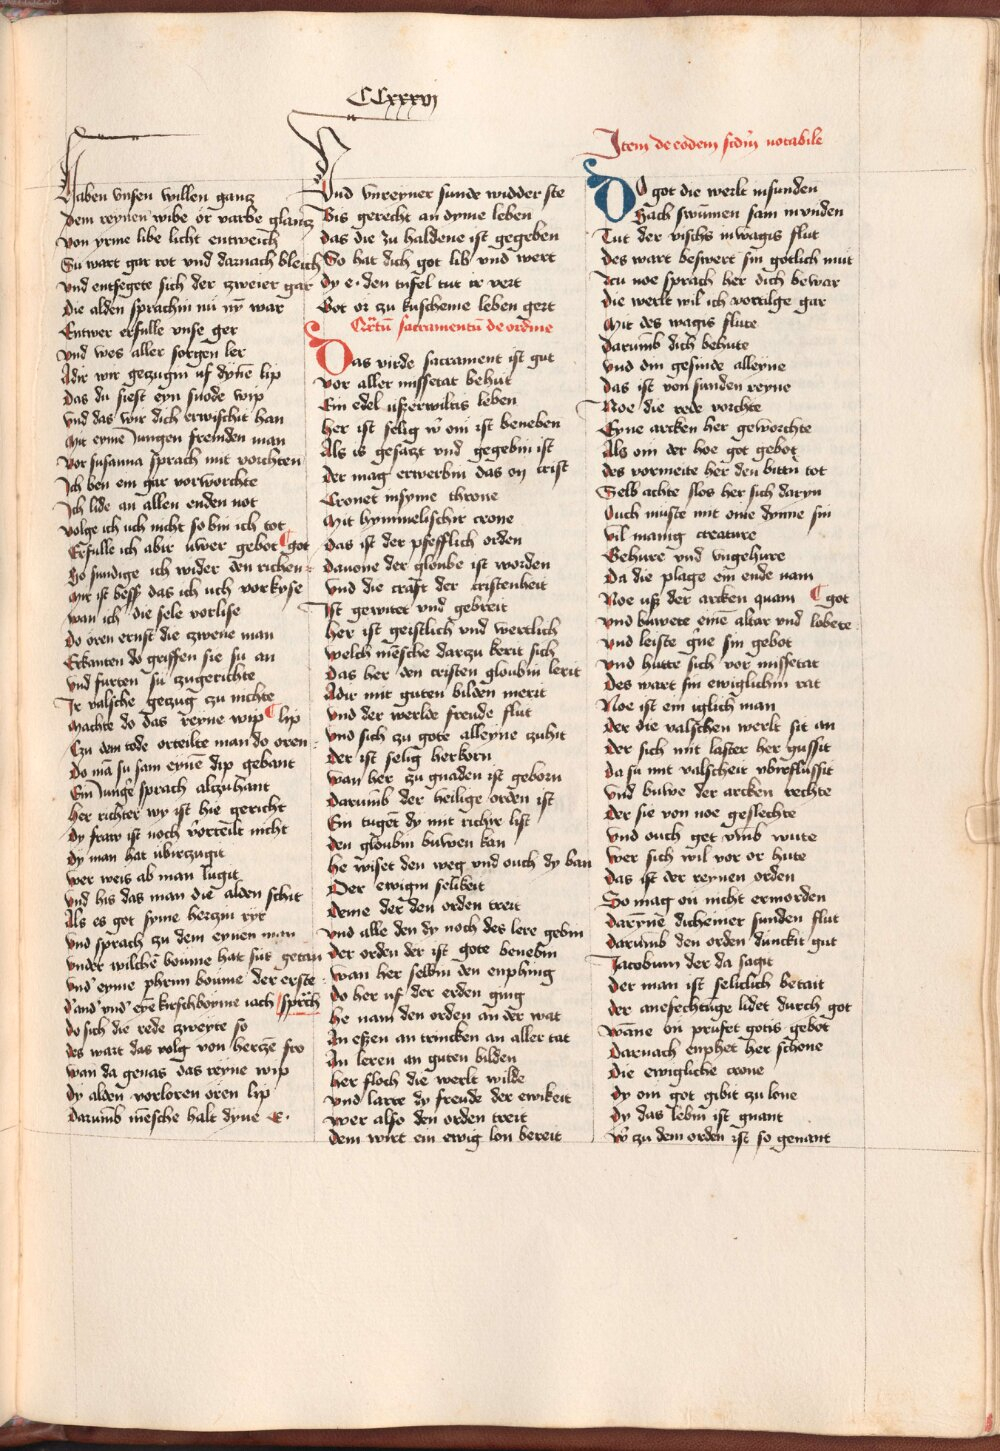 CCxxxvj
Haben vnsen willen gancz
Dem reynen wibe ör varbe glancz
von yrme libe licht entweich
Su wart gar rot vnd darnach bleich
vnd entsegete sich der zweier gar
Die alden sprachin nū nȳ war
Entwer erfulle vnse ger
vnd wes aller sorgen ler
Adir wir geczugin uf dynē lip
Das du siest eyn snode wip
vnd das wir dich erwischit han
Mit eyme Jungen fremden man
vor susanna sprach mit vorchten
Ich ben ein gar vorworchte
Ich lide an allen enden not
volge ich uch nicht so bin ich tot
Erfulle ich abir uwer gebot ¶ got
So sundige ich wider den richen
Mir ist bess das ich uch vorkyse
wan ich die sele vorlise
Do oren ernst die zwene man
Erkanten do griffen sie su an
vnd furten su zugerichte
Ir valsche geczug zu nichte
Machte do das reyne wip ¶ lip
Czu dem tode orteilte man do oren
Do mā su sam eyne dip gebant
Ein Junger sprach alczuhant
her richter wy ist hie gericht
Dy fraw ist noch vorteilt nicht
Dy man hat ubirczugit
wer weis ab man lugit
vnd his das man die alden schit
Als es got syme herczin ryt
vnd sprach zu dem eynen man
vnder wilchē boume hat sus getan
vnd eyme phrim boume der erste
d' and' vnd' eyē kirschboyme iach sprach
do sich die rede zweyte so
des wart das volg von herczē fro
wan da genas das reyne wip
dy alden vorloren oren lip
darumb mēsche halt dyne E.
Vnd vnreyner sunde widder ste
Bis gerecht an dyme leben
das die zu haldene ist gegeben
So hat dich got lib vnd wert
dy e. den tufel tut er vert
Got or zu kuscheme leben gert
Qrtū sacramentū de ordine
Das virde sacrament ist gut
vor aller missetat behut
Ein edel usserweltis leben
her ist selig w' om ist beneben
Als is gesaczt vnd gegebin ist
der mag erwerbin das on crist
Cronet insyme throne
Mit hymmelischir crone
Das ist der pfefflich orden
dauone der gloube ist worden
vnd die craft der cristenheit
Ist gewitet vnd gebreit
her ist geistlich vnd wertlich
welch mēsche darzu kerit sich
Das her den cristen gloubin lerit
Adir mit guten bilden merit
vnd der werlde freude flut
vnd sich zu gote alleyne zuhit
der ist selig herkorn
wan her zu gnaden ist geborn
darumb der heilige orden ist
Ein tugēt dy mit richir list
den gloubin buwen kan
he wiset den weg vnd ouch dy ban
Der ewigin selikeit
Deme der den orden treit
vnd alle den dy noch des lere gebin
der orden der ist gote benebin
wan her selbin den enphing
do her uf der erden ging
he nam den orden an der wat
An essen an trincken an aller tat
An leren an guten bilden
her floch die werlt wilde
vnd larte dy freude der ewikeit
wer also den orden treit
dem wirt ein ewig lon bereit
Item de eodem scdm notabile
Do got die werlt insunden
Sach swūmen sam in vnden
Tut der vischs in wagis flut
Des wart beswert sin gotlich mut
Ncu noe sprach her dich bewar
die werlt wil ich vortilge gar
Mit des wagis flute
Darumb dich behute
vnd din gesinde alleyne
das ist von sunden reyne
Noe die rede vorchte
Eyne arcken her geworchte
Als om der hoe got gebot
des vormeite her den bittn tot
Selb achte slos her sich daryn
Ouch muste mit ome dynne sin
vil manig creature
Gehure vnd vngehure
Da die plage ein ende nam
Noe uss der arcken quam ¶ got
vnd buwete eine altar vnd lobete
vnd leiste gne sin gebot
vnd hutte sich vor missetat
des wart sin ewiglichin rat
Noe ist ein iglich man
der die valschen werlt sit an
der sich mit laster her gussit
da su mit valscheit vbirflussit
vnd buwe der arcken rechte
der sie von noe geslechte
vnd ouch get vmb wute
wer sich wil vor or hute
das ist der reynen orden
So mag on nicht ermorden
dareyne dicheiner sunden flut
darumb den orden dunckit gut
Jacobum der da sagit
der man ist seliclich betait
der anefechtuge lidet durch got
wanne on prufet gotis gebot
Darnach enphet her schone
die ewigliche crone
dy om got gibit zu lone
dy das lebin ist gnant
w' zu dem orden ist so genant